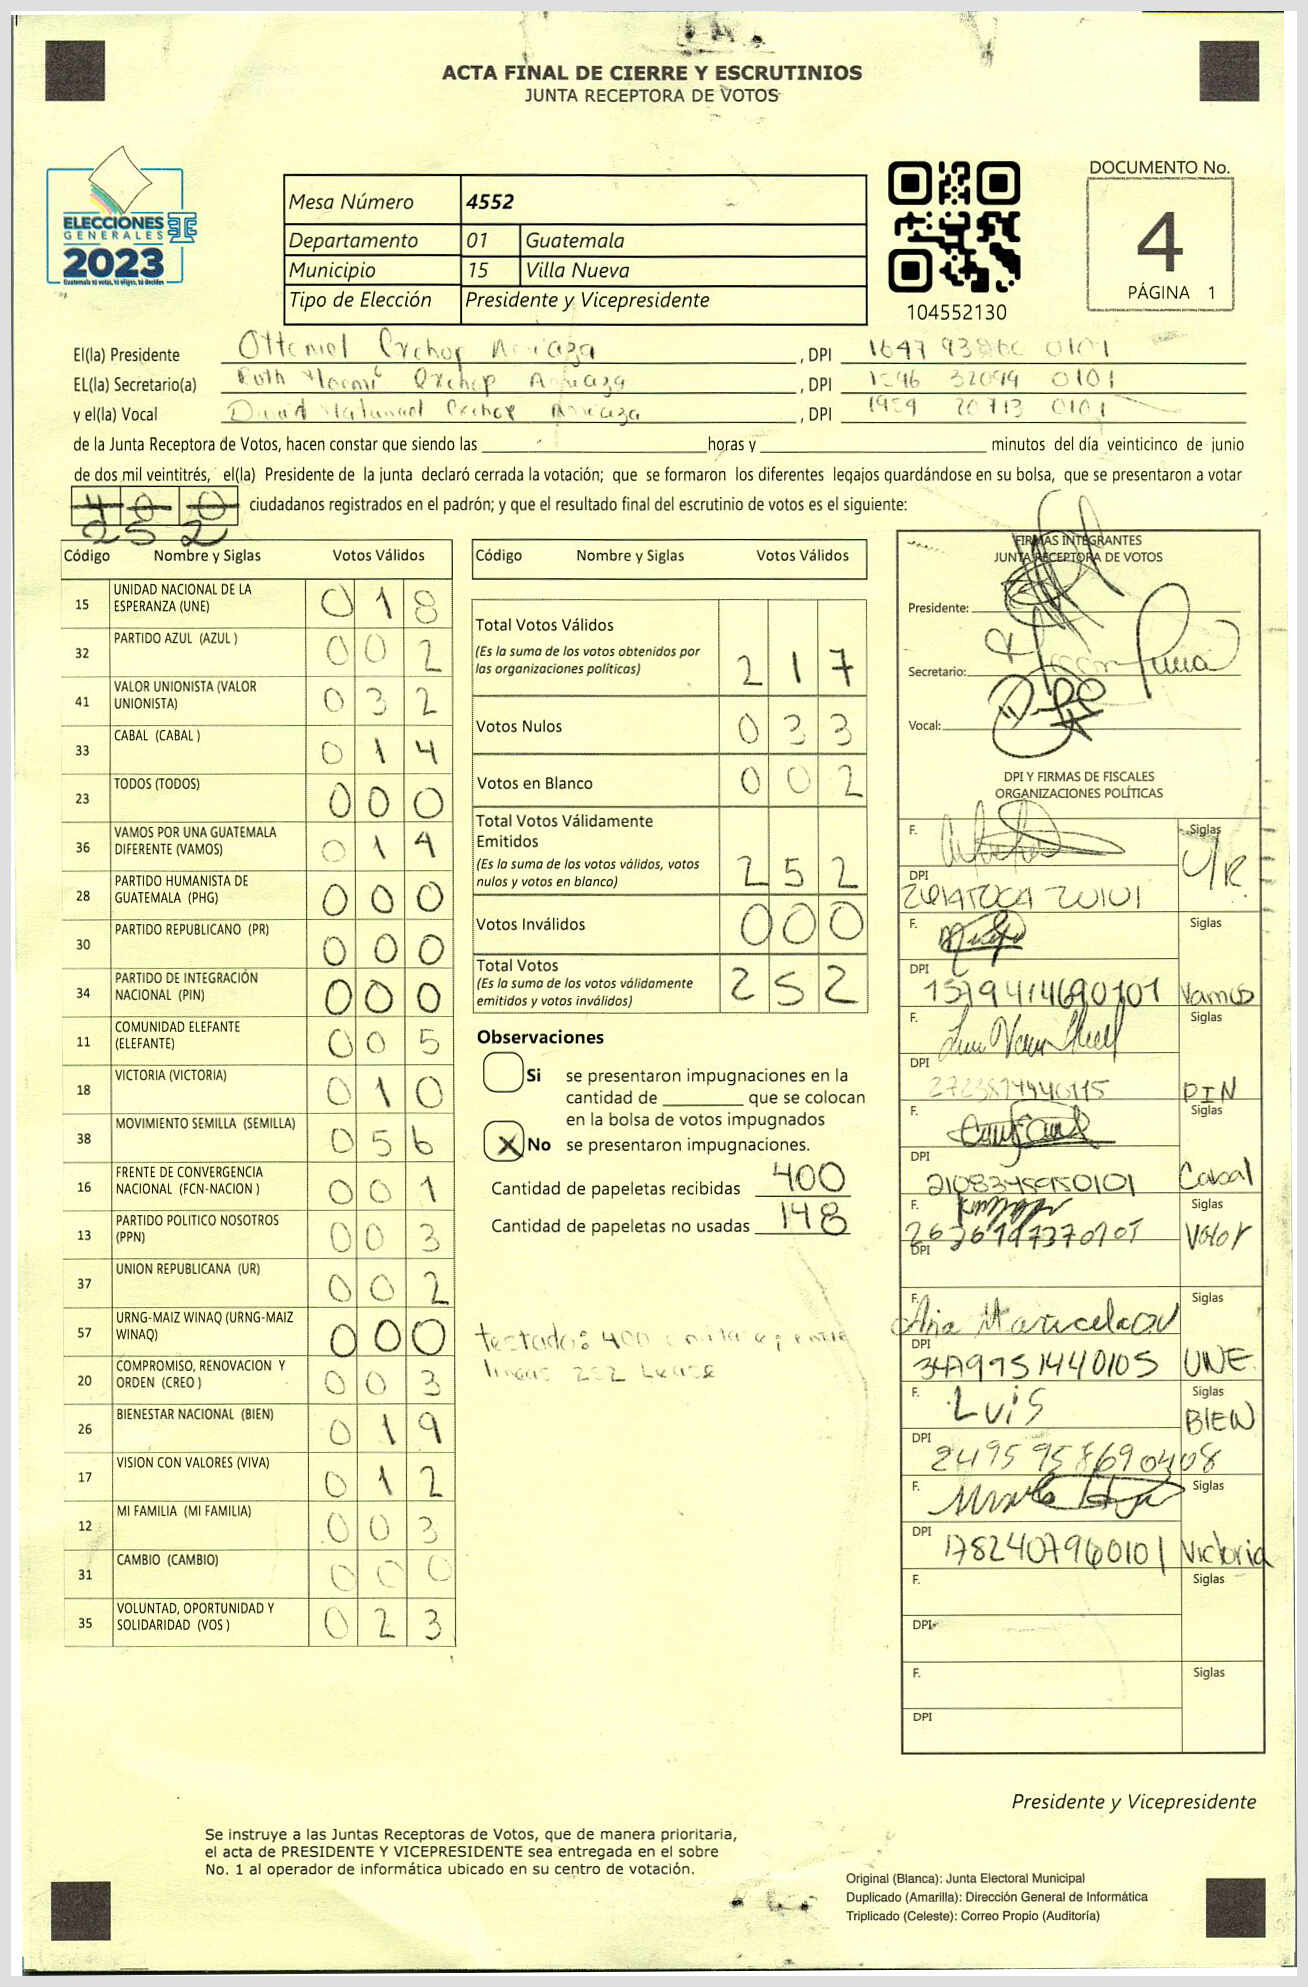 ACTA FINAL DE CIERRE Y ESCRUTINIOS
JUNTA RECEPTORA DE VOTOS
ELECCIONES
GENERALES
2023
Guatemala tú votas, tú eliges, tú decides
Mesa Número 4552
Departamento 01 Guatemala
Municipio 15 Villa Nueva
Tipo de Elección Presidente y Vicepresidente
104552130
DOCUMENTO No.
4
PÁGINA 1
El(la) Presidente Ottoniel Oxchop , DPI 0101
EL(la) Secretario(a) Ruth Noemí Oxchop , DPI 0101
y el(la) Vocal David Oxchop , DPI 0101
de la Junta Receptora de Votos, hacen constar que siendo las horas y minutos del día veinticinco de junio
de dos mil veintitrés, el(la) Presidente de la junta declaró cerrada la votación; que se formaron los diferentes legajos guardándose en su bolsa, que se presentaron a votar
400 ciudadanos registrados en el padrón; y que el resultado final del escrutinio de votos es el siguiente:
252
Código Nombre y Siglas Votos Válidos
15 UNIDAD NACIONAL DE LA ESPERANZA (UNE) 018
32 PARTIDO AZUL (AZUL ) 002
41 VALOR UNIONISTA (VALOR UNIONISTA) 032
33 CABAL (CABAL ) 014
23 TODOS (TODOS) 000
36 VAMOS POR UNA GUATEMALA DIFERENTE (VAMOS) 014
28 PARTIDO HUMANISTA DE GUATEMALA (PHG) 000
30 PARTIDO REPUBLICANO (PR) 000
34 PARTIDO DE INTEGRACIÓN NACIONAL (PIN) 000
11 COMUNIDAD ELEFANTE (ELEFANTE) 005
18 VICTORIA (VICTORIA) 010
38 MOVIMIENTO SEMILLA (SEMILLA) 056
16 FRENTE DE CONVERGENCIA NACIONAL (FCN-NACION ) 001
13 PARTIDO POLITICO NOSOTROS (PPN) 003
37 UNION REPUBLICANA (UR) 002
57 URNG-MAIZ WINAQ (URNG-MAIZ WINAQ) 000
20 COMPROMISO, RENOVACION Y ORDEN (CREO ) 003
26 BIENESTAR NACIONAL (BIEN) 019
17 VISION CON VALORES (VIVA) 012
12 MI FAMILIA (MI FAMILIA) 003
31 CAMBIO (CAMBIO) 000
35 VOLUNTAD, OPORTUNIDAD Y SOLIDARIDAD (VOS ) 023
Código Nombre y Siglas Votos Válidos
Total Votos Válidos
(Es la suma de los votos obtenidos por las organizaciones políticas) 217
Votos Nulos 033
Votos en Blanco 002
Total Votos Válidamente Emitidos
(Es la suma de los votos válidos, votos nulos y votos en blanco) 252
Votos Inválidos 000
Total Votos
(Es la suma de los votos válidamente emitidos y votos inválidos) 252
Observaciones
Si se presentaron impugnaciones en la
cantidad de que se colocan
en la bolsa de votos impugnados
X No se presentaron impugnaciones.
Cantidad de papeletas recibidas 400
Cantidad de papeletas no usadas 148
testado: 400 entre
lineas 252 Lease
FIRMAS INTEGRANTES
JUNTA RECEPTORA DE VOTOS
Presidente:
Secretario:
Vocal:
DPI Y FIRMAS DE FISCALES
ORGANIZACIONES POLÍTICAS
F. Siglas
DPI UR
F. Siglas
DPI 1579414690101 Vamos
F. Siglas
DPI PIN
F. Siglas
DPI Cabal
F. Siglas
DPI Valor
F. Ana Maricela Siglas
DPI 3479951440105 UNE
F. Luis Siglas
DPI 2495958690408 BIEN
F. Siglas
DPI 1782407960101 Victoria
F. Siglas
DPI
F. Siglas
DPI
Presidente y Vicepresidente
Se instruye a las Juntas Receptoras de Votos, que de manera prioritaria,
el acta de PRESIDENTE Y VICEPRESIDENTE sea entregada en el sobre
No. 1 al operador de informática ubicado en su centro de votación.
Original (Blanca): Junta Electoral Municipal
Duplicado (Amarilla): Dirección General de Informática
Triplicado (Celeste): Correo Propio (Auditoría)